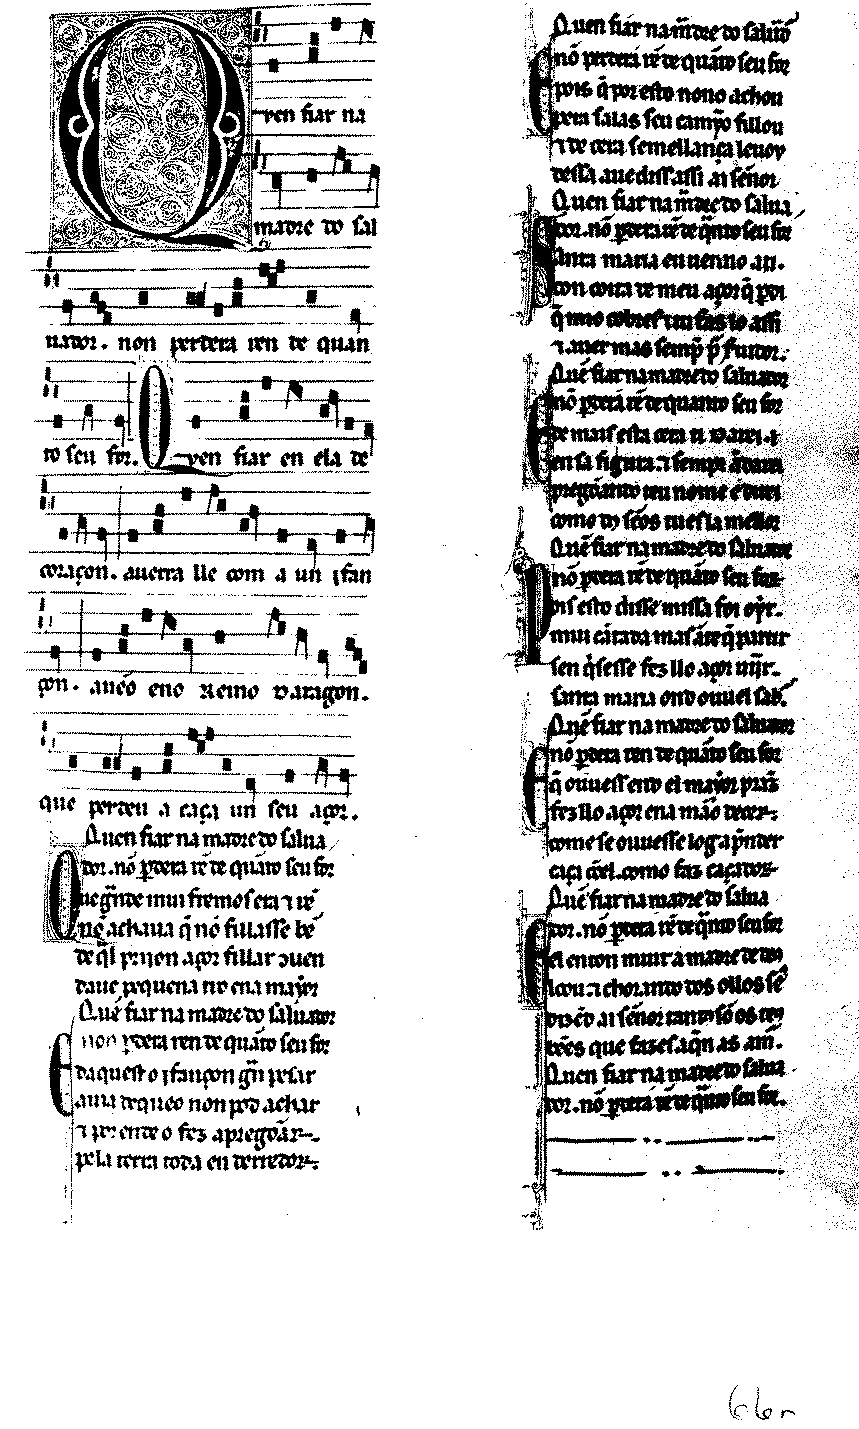 Quen fiar na
madre do sal
uador. non perdera ren de quan
to seu for. Quen fiar en ela de
coraçon. auerra lle com a un jfan
çon. aueo eno Reino daragon.
que perdeu a caça un seu açor.
Quen fiar na madre do salua
dor. nõ ꝑdera rẽ de quãto seu for
Que grãde mui fremos era ⁊ rẽ
nõ achaua q̃ nõ fillasse bẽ
de q̃l prijon açor fillar conuen
daue pequena tro ena mayor
Quẽ fiar na madre do saluador
non ꝑdera ren de quãto seu for
E daquest o jfançon grã pesar
auia de que o non pod achar
⁊ por ende o fez apregõar
pela terra toda en derredor
Quen fiar na madre do saluad
nõ perdera rẽ de quãto seu for
E pois q̃ por esto nono achou
pera salas seu camỹo fillou
⁊ de cera semellança leuou
dessa aue diss assi ai sennor
Quen fiar na madre do salua
dor. nõ ꝑdera rẽ de q̃nto seu for
Santa maria eu uenno ati.
con coita de meu açor q̃ ꝑdi
q̃ mio cobres tu fas lo assi
⁊ auer mas semp̃ ꝑ seruidor.
Quẽ fiar na madre do saluador
nõ ꝑdera rẽ de quanto seu for
E de mais esta cera ti darei
en sa figura ⁊ sempr andarei
pregõando teu nome e direi
como dos sẽos tues la mellor
Quẽ fiar na madre do saluador
nõ ꝑdera rẽ de quãto seu for
Pois esto disse missa foi oyr.
mui cãtada mas ãte q̃ partir
sen q̃sesse fez llo açor uijr.
santa maria ond ouuel sab.
Quẽ fiar na madre do saluador
nõ ꝑdera ren de quãto seu for
E q̃ ouuess end el mayor praz
fez llo açor ena mão decer
come se ouuesse log a p̃nder
caça cõel como faz caçador
Quẽ fiar na madre do salua
dor. nõ ꝑdera rẽ de q̃nto seu for
E el enton muit a madre de deus
loou ⁊ chorando dos ollos sẽ
dizẽd ai sẽnor tantos sõ os teus
bẽes que fazes aq̃n as am.
Quen fiar na madre do salua
dor. nõ ꝑdera rẽ de q̃nto seu for.
66r